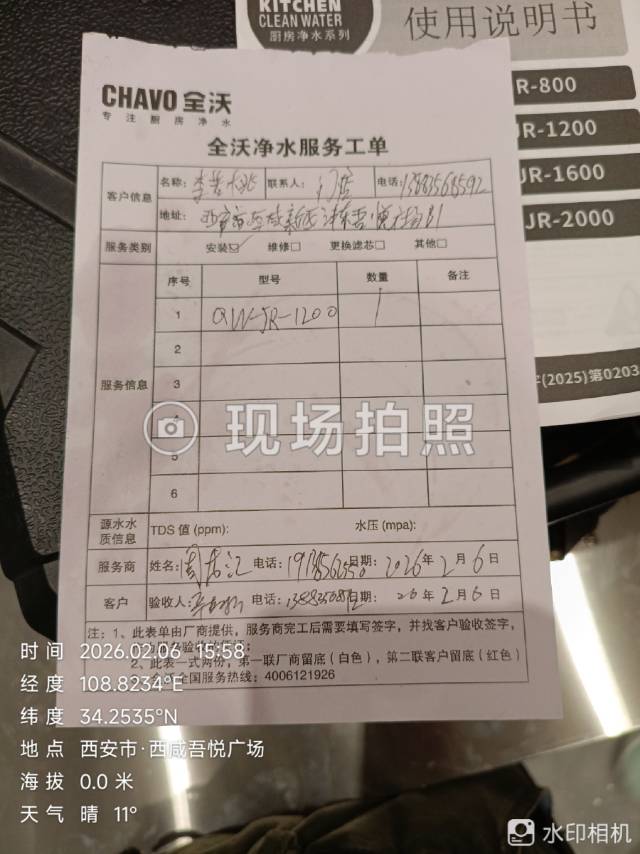 KITCHEN
CLEAN WATER
厨房净水系列
使用说明书
R-800
JR-1200
JR-1600
JR-2000
(2025)第0203
CHAVO 全沃
专注厨房净水
全沃净水服务工单
客户信息 名称: 联系人: 电话:
地址:
服务类别 安装☑ 维修□ 更换滤芯□ 其他□
服务信息 序号 型号 数量 备注
1 QW-JR-1200 1
2
3
4
5
6
现场拍照
源水水质信息 TDS 值 (ppm): 水压 (mpa):
服务商 姓名: 电话: 日期: 2026年 2月 6日
客户 验收人: 电话: 日期: 26年 2月 6日
注: 1、此表单由厂商提供，服务商完工后需要填写签字，并找客户验收签字，
2、此表一式两份，第一联厂商留底（白色），第二联客户留底（红色）
全国服务热线: 4006121926
时间 2026.02.06 15:58
经度 108.8234°E
纬度 34.2535°N
地点 西安市·西咸吾悦广场
海拔 0.0 米
天气 晴 11°
水印相机